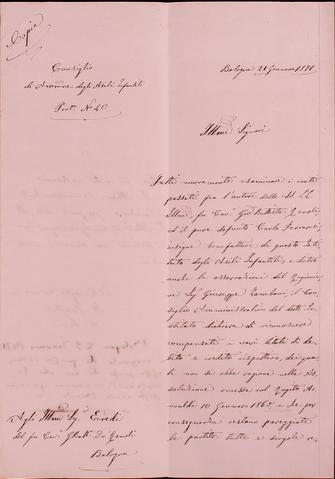 Copia
Consiglio
di Direzione degli Asili Infantili
Prot. N. 40
Bologna 21 Gennaro 1871
Illmi Signori
Fatti nuovamente esaminare i conti
passati fra l'autore delle SS. LL.
Illme, fu Cav. Gio. Battista
ed il pure defunto Carlo
insigne benefattore di questo Isti-
tuto degli Asili Infantili, e dietro
anche le osservazioni del Ragioniere
Sig. Giuseppe Tamboni, il Con-
siglio Amministrativo del detto I-
stituto dichiara di riconoscere
compensati i varj titoli di de-
bito e credito rispettivo, dei qua-
li non si ebbe ragione nella As-
soluzione emessa col Rogito
10 Gennaro 1865, e che per
conseguenza restano pareggiate
le partite tutte e singole
Agli Illmi Sigi. Eredi
del fu Cav. G. Batt.
Bologna